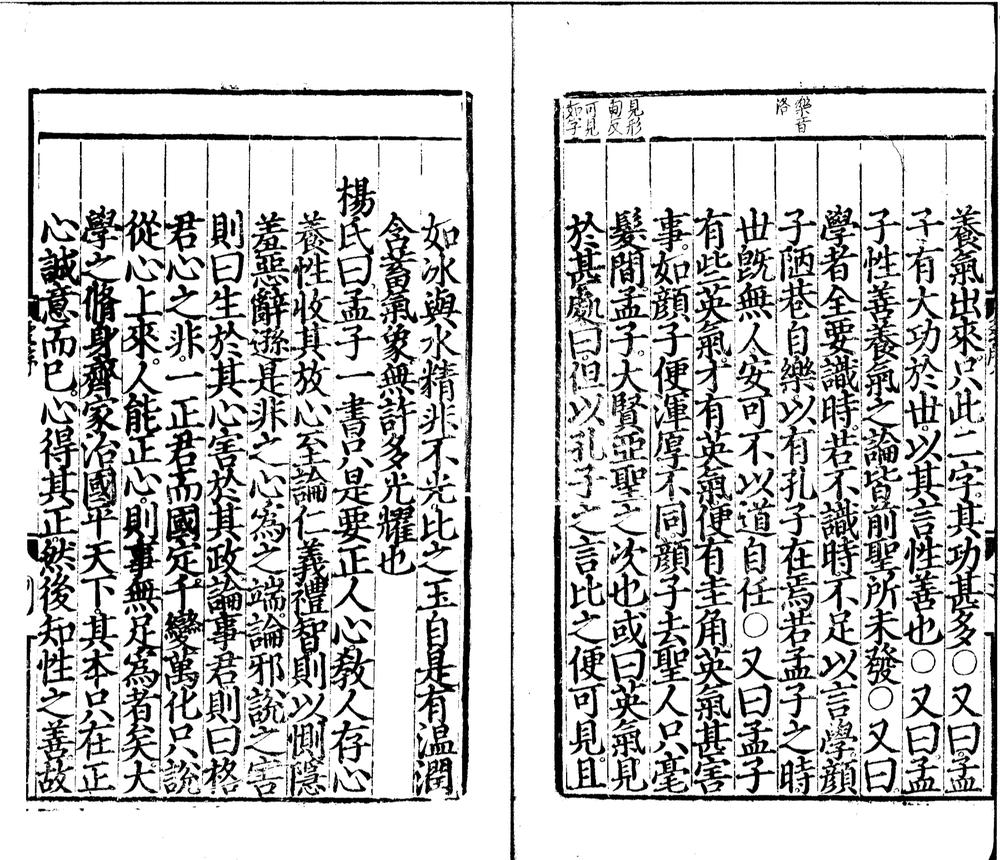 養氣出來只此二字其功甚多○又曰孟
子有大功於世以其言性善也○又曰孟
子性善養氣之論皆前聖所未發○又曰
學者全要識時若不識時不足以言學顏
子陋巷自樂以有孔子在焉若孟子之時
世旣無人安可不以道自任○又曰孟子
有些英氣才有英氣便有圭角英氣甚害
事如顏子便渾厚不同顏子去聖人只毫
髮間孟子大賢亞聖之次也或曰英氣見
於甚處曰但以孔子之言比之便可見且
樂音
洛
見形
甸反
可見
如字
如冰與水精非不光比之玉自是有温潤
含蓄氣象無許多光耀也
楊氏曰孟子一書只是要正人心教人存心
養性收其放心至論仁義禮智則以惻隱
羞惡辭遜是非之心爲之端論邪說之害
則曰生於其心害於其政論事君則曰格
君心之非一正君而國定千變萬化只說
從心上來人能正心則事無足爲者矣大
學之脩身齊家治國平天下其本只在正
心誠意而已心得其正然後知性之善故